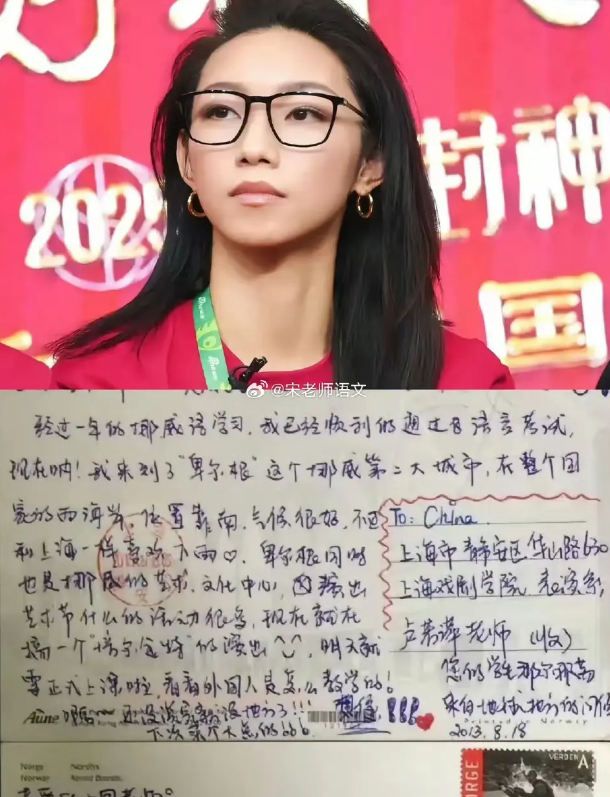 好
封神
2025
国
@宋老师语文
经过一年的挪威语学习,我已经顺利的通过B语言考试,
现在呐!我来到了“卑尔根”这个挪威第二大城市,在整个国
家的西海岸,位置靠南,气候很好,不过
和上海一样喜欢下雨♡。卑尔根同时
也是挪威的艺术、文化中心,演出
艺术节什么的活动很多,现在就在
搞一个“培尔·金特”的演出
明天就
要正式上课啦,看看外国人是怎么教学的!
还没写完就没地方了!!!
下次
To: China
上海市静安区华山路630
上海戏剧学院,表演系,
老师(收)
您的学生
来自地球
2013.8.18
Aune
Printed in Norway
Norge
Norway
NORGE
VERDEN A